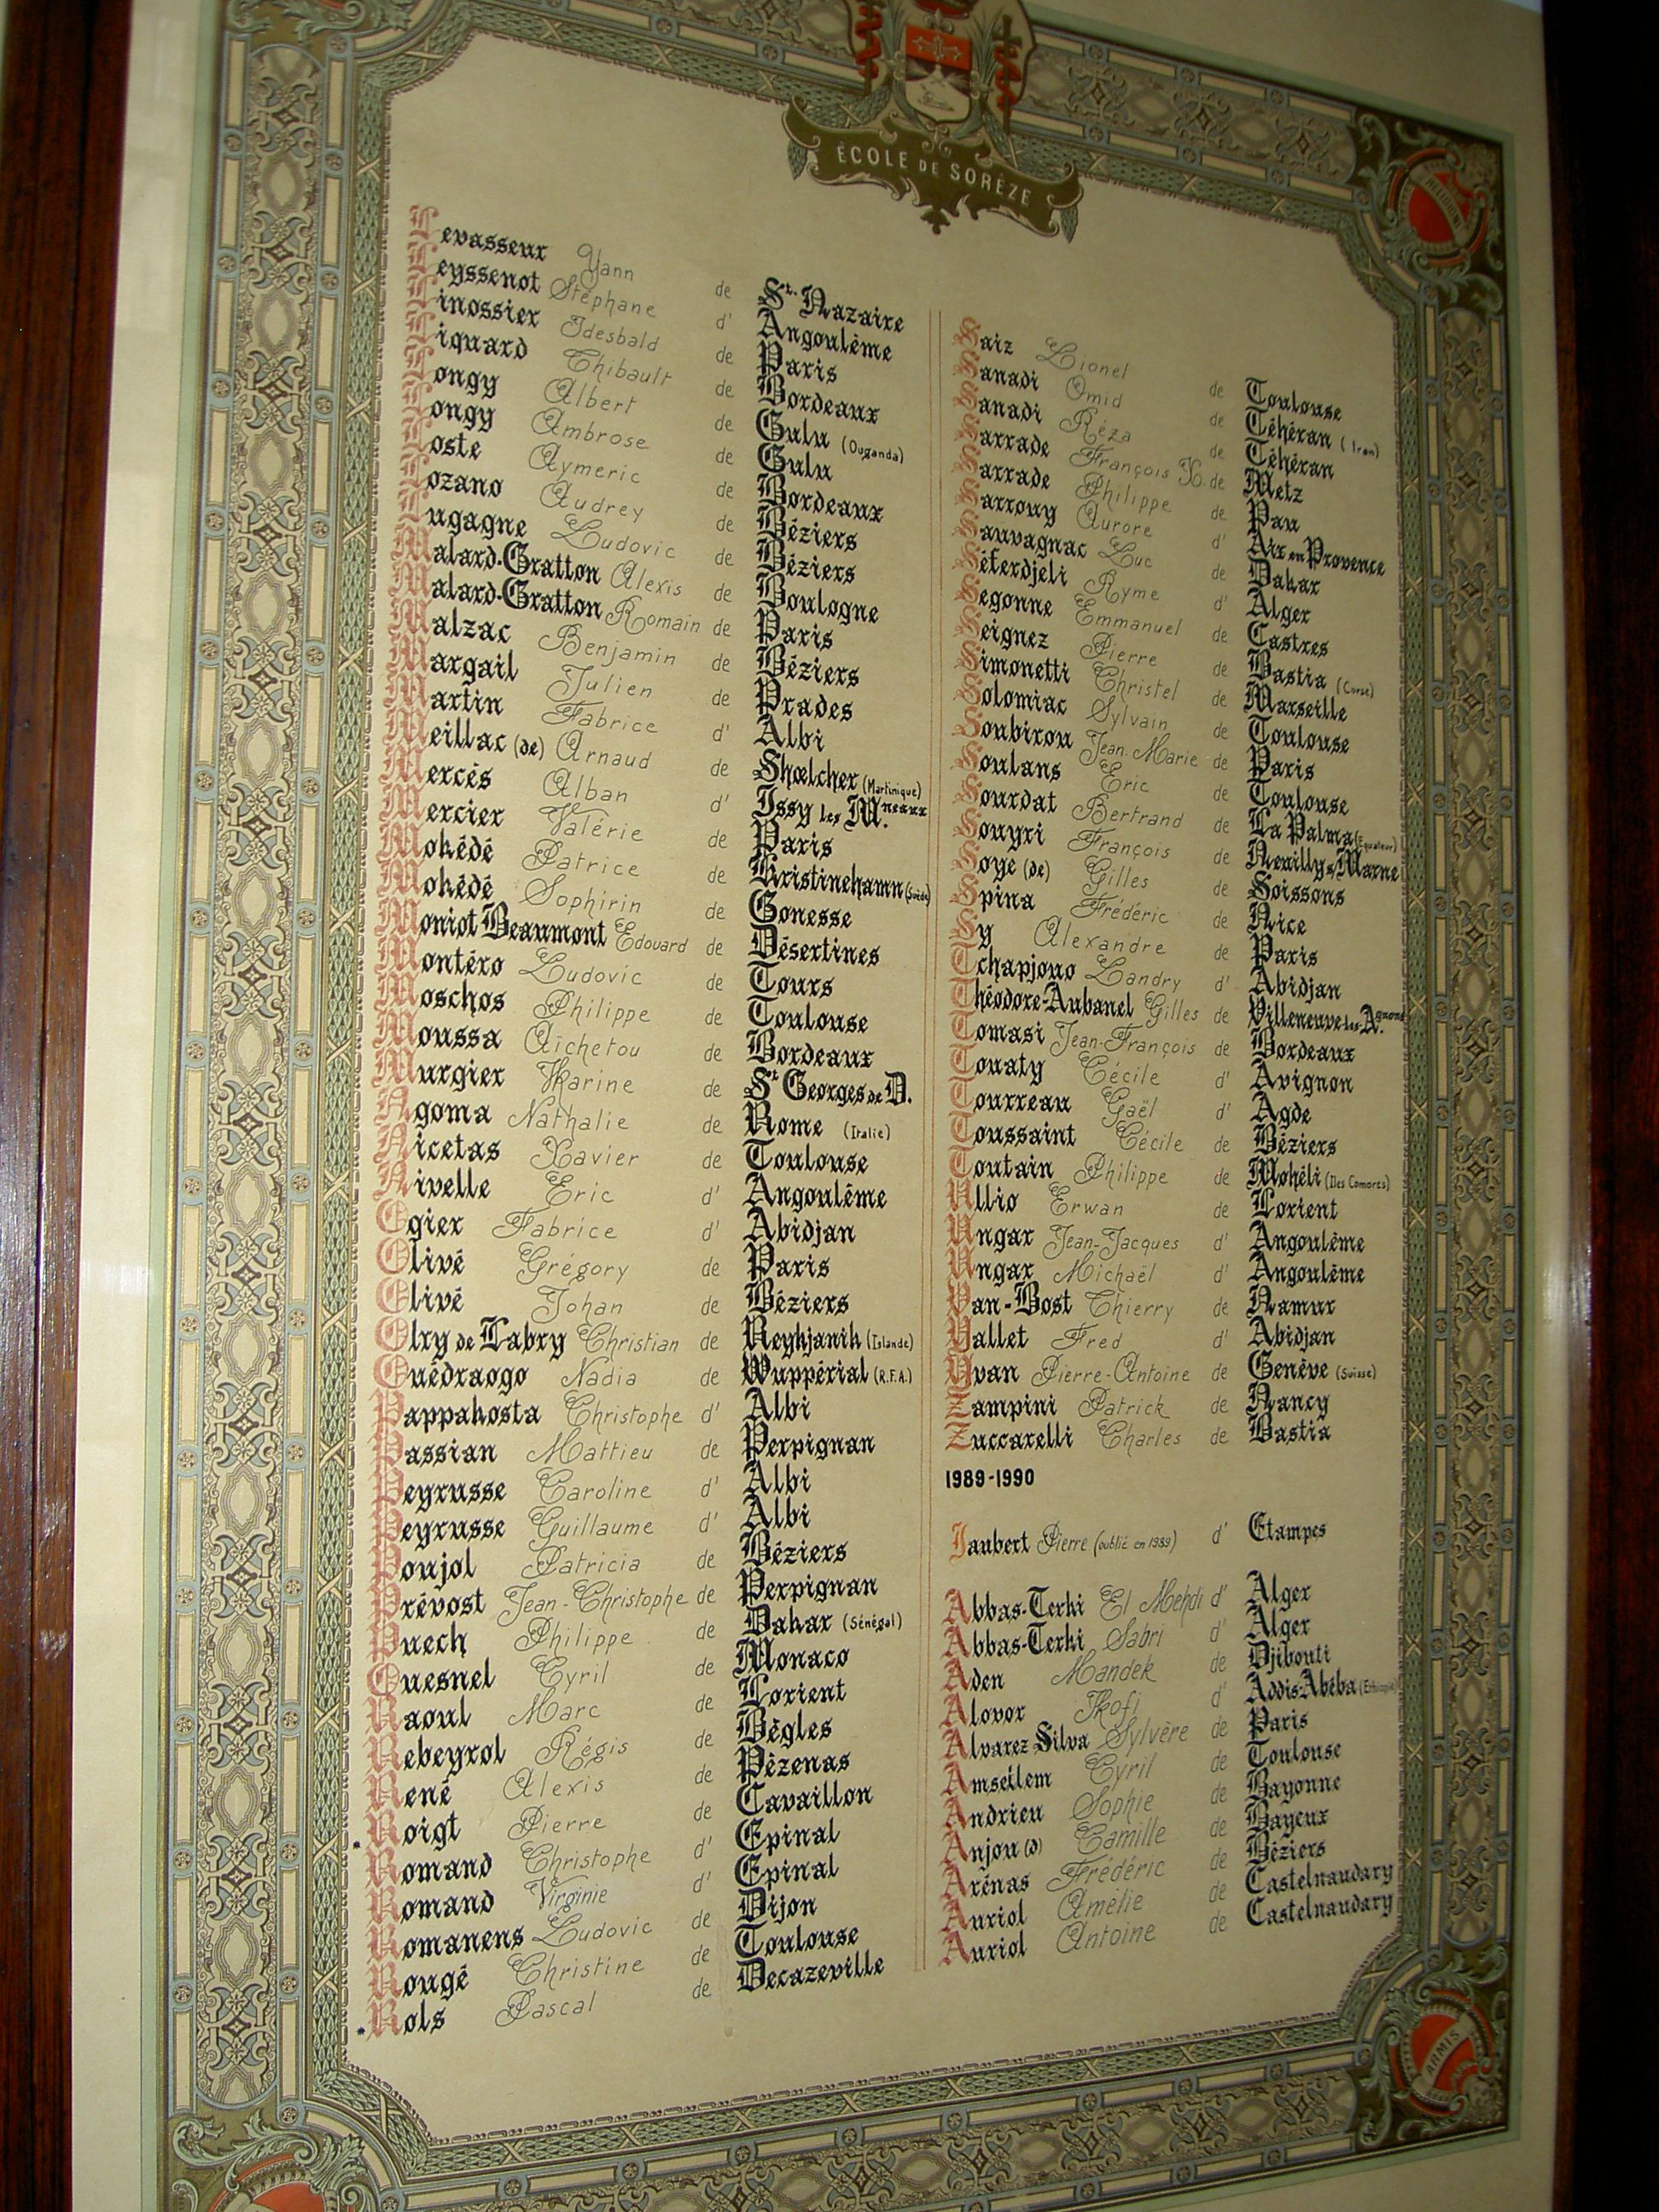 ÉCOLE DE SORÈZE
Levasseur Yann de St. Nazaire
Leyssenot Stéphane d' Angoulême
Linossier Idesbald de Paris
Liquard Thibault de Bordeaux
Longy Albert de Gulu (Ouganda)
Longy Ambrose de Gulu
Loste Aymeric de Bordeaux
Lozano Audrey de Béziers
Lugagne Ludovic de Béziers
Malard-Gratton Alexis de Boulogne
Malard-Gratton Romain de Paris
Malzac Benjamin de Béziers
Margail Julien de Prades
Martin Fabrice d' Albi
Meillac (de) Arnaud de Shœlcher (Martinique)
Mercés Alban d' Issy les M.neaux
Mercier Valérie de Paris
Mohédé Patrice de Kristinehamn (Suède)
Mohédé Sophirin de Gonesse
Moniot Beaumont Edouard de Désertines
Montéro Ludovic de Tours
Moschos Philippe de Toulouse
Moussa Aichetou de Bordeaux
Murgier Karine de St Georges de D.
Ngoma Nathalie de Rome (Italie)
Nicetas Xavier de Toulouse
Nivelle Eric d' Angoulême
Ogier Fabrice d' Abidjan
Olivé Grégory de Paris
Olivé Johan de Béziers
Olry de Labry Christian de Reykjanik (Islande)
Ouédraogo Nadia de Wuppérial (R.F.A.)
Pappakosta Christophe d' Albi
Passian Mattieu de Perpignan
Peyrusse Caroline d' Albi
Peyrusse Guillaume d' Albi
Poujol Patricia de Béziers
Prévost Jean-Christophe de Perpignan
Puech Philippe de Dakar (Sénégal)
Quesnel Cyril de Monaco
Raoul Marc de Lorient
Rebeyrol Régis de Bègles
René Alexis de Pézenas
Roigt Pierre de Cavaillon
Romand Christophe d' Epinal
Romand Virginie d' Epinal
Romanens Ludovic de Dijon
Rougé Christine de Toulouse
Rols Pascal de Decazeville
Saiz Lionel de Toulouse
Sanadi Omid de Téhéran (Iran)
Sanadi Réza de Téhéran
Sarrade François X. de Metz
Sarrade Philippe de Pau
Sarrouy Aurore d' Aix en Provence
Sauvagnac Luc de Dakar
Séferdjeli Ryme d' Alger
Segonne Emmanuel de Castres
Seignez Pierre de Bastia (Corse)
Simonetti Christel de Marseille
Solomiac Sylvain de Toulouse
Soubirou Jean.Marie de Paris
Soulans Eric de Toulouse
Sourdat Bertrand de La Palma (Equateur)
Souyri François de Neuilly s/ Marne
Soye (de) Gilles de Soissons
Spina Frédéric de Nice
Sy Alexandre de Paris
Tchapjouo Landry d' Abidjan
Théodore-Aubanel Gilles de Villeneuve les A.gnons
Tomasi Jean-François de Bordeaux
Touaty Cécile d' Avignon
Tourreau Gaël d' Agde
Toussaint Cécile de Béziers
Toutain Philippe de Mohéli (Iles Comores)
Ullio Erwan de Lorient
Ungar Jean-Jacques d' Angoulême
Ungar Michaël d' Angoulême
Van-Bost Thierry de Namur
Vallet Fred d' Abidjan
Yvan Pierre-Antoine de Genève (Suisse)
Zampini Patrick de Nancy
Zuccarelli Charles de Bastia
1989-1990
Jaubert Pierre (oublié en 1989) d' Etampes
Abbas-Terki El Mehdi d' Alger
Abbas-Terki Sabri d' Alger
Aden Mandek de Djibouti
Alovor Kofi d' Addis-Abéba (Ethiopie)
Alvarez Silva Sylvère de Paris
Amseilem Cyril de Toulouse
Andrieu Sophie de Bayonne
Anjou (d) Camille de Bayeux
Arénas Frédéric de Béziers
Auriol Amélie de Castelnaudary
Auriol Antoine de Castelnaudary
ARMIS